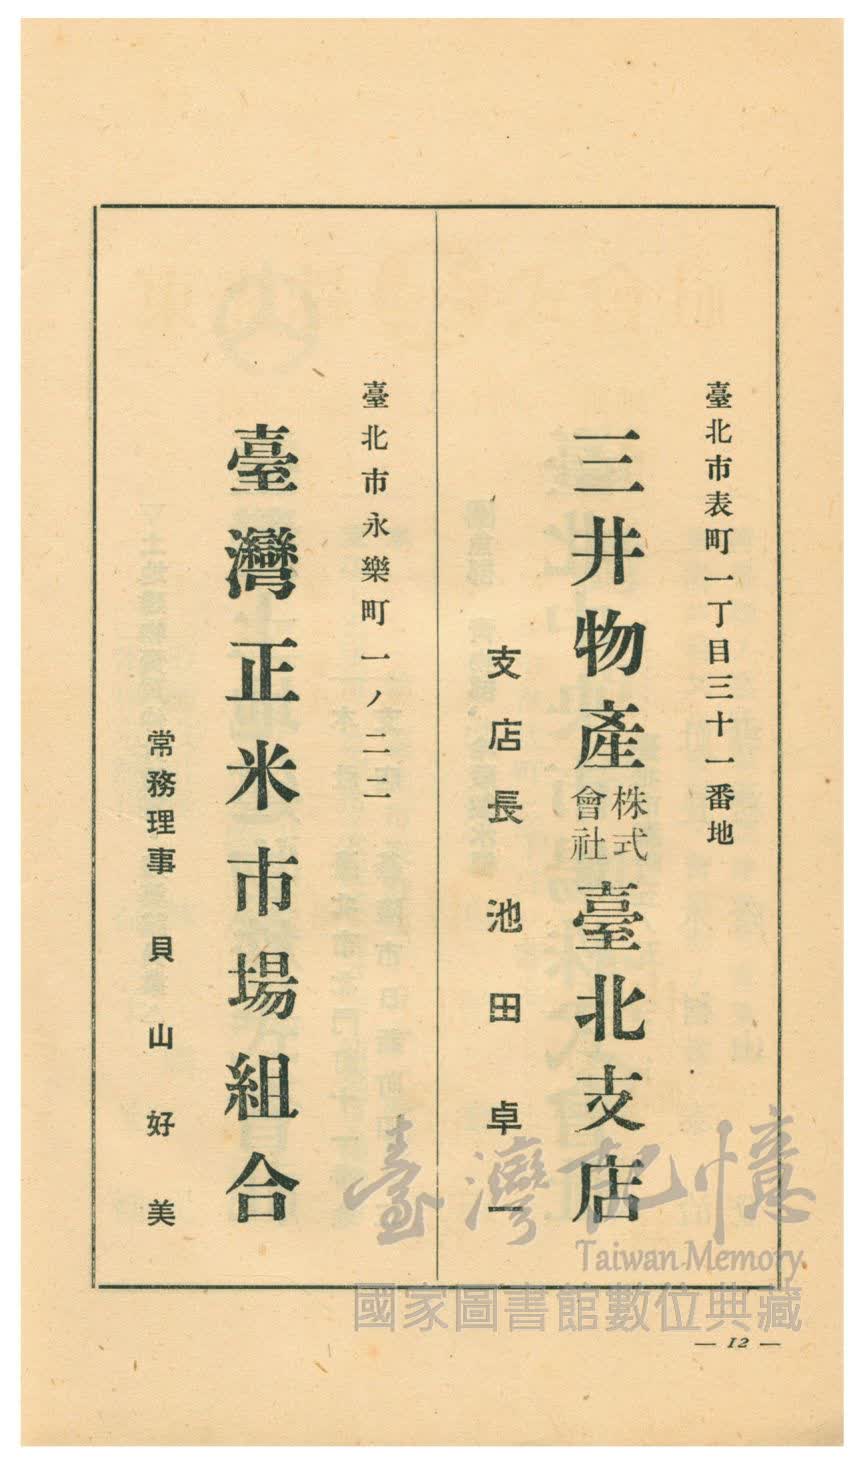 臺北市表町一丁目三十一番地
三井物產株式會社臺北支店
支店長 池田卓一
臺北市永樂町一ノ二二
臺灣正米市場組合
常務理事 貝山好美
臺灣記憶
Taiwan Memory
國家圖書館數位典藏
— 12 —